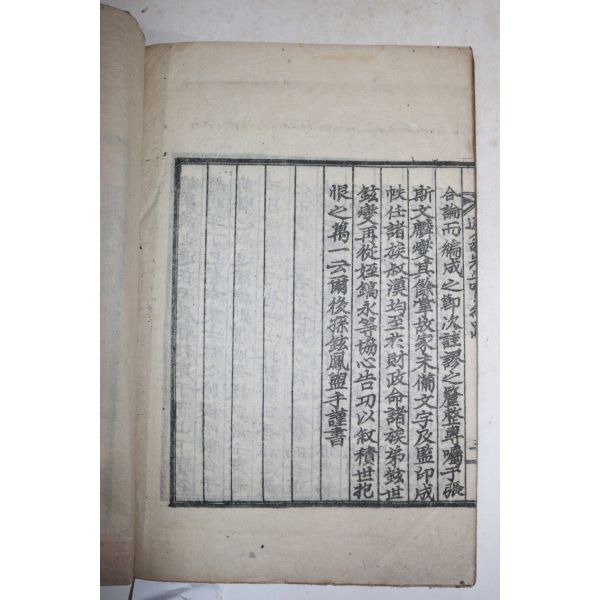 合論而編成之節次註謬之釐整專囑于張
斯文麟燮其餘輩故家未備文字及監印成
帙任諸族叔漢均至於財政命諸族弟鉉世
鉉燮再從姪鎬永等協心告功以叙積世抱
恨之萬一云爾後孫鉉鳳盥手謹書